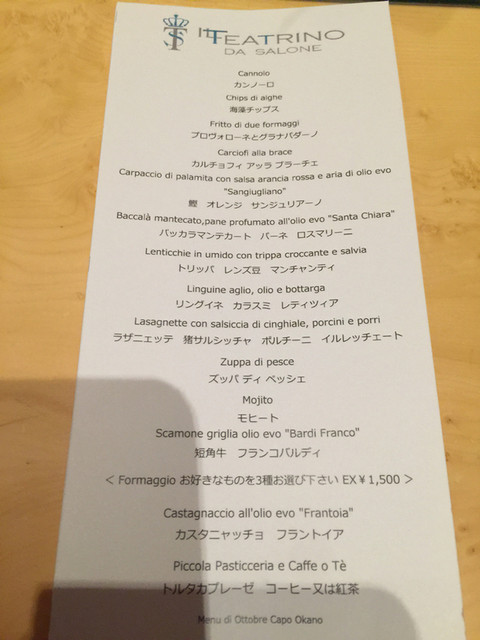 IL TEATRINO
DA SALONE
Cannolo
カンノーロ
Chips di alghe
海藻チップス
Fritto di due formaggi
プロヴォローネとグラナパダーノ
Carciofi alla brace
カルチョフィ アッラ ブラーチェ
Carpaccio di palamita con salsa arancia rossa e aria di olio evo
"Sangiugliano"
鰹 オレンジ サンジュリアーノ
Baccalà mantecato,pane profumato all'olio evo "Santa Chiara"
バッカラマンテカート パーネ ロスマリーニ
Lenticchie in umido con trippa croccante e salvia
トリッパ レンズ豆 マンチャンティ
Linguine aglio, olio e bottarga
リングイネ カラスミ レティツィア
Lasagnette con salsiccia di cinghiale, porcini e porri
ラザニェッテ 猪サルシッチャ ポルチーニ イルレッチェート
Zuppa di pesce
ズッパ ディ ペッシェ
Mojito
モヒート
Scamone griglia olio evo "Bardi Franco"
短角牛 フランコバルディ
< Formaggio お好きなものを3種お選び下さい EX￥1,500 >
Castagnaccio all'olio evo "Frantoia"
カスタニャッチョ フラントイア
Piccola Pasticceria e Caffe o Tè
トルタカプレーゼ コーヒー又は紅茶
Menu di Ottobre Capo Okano